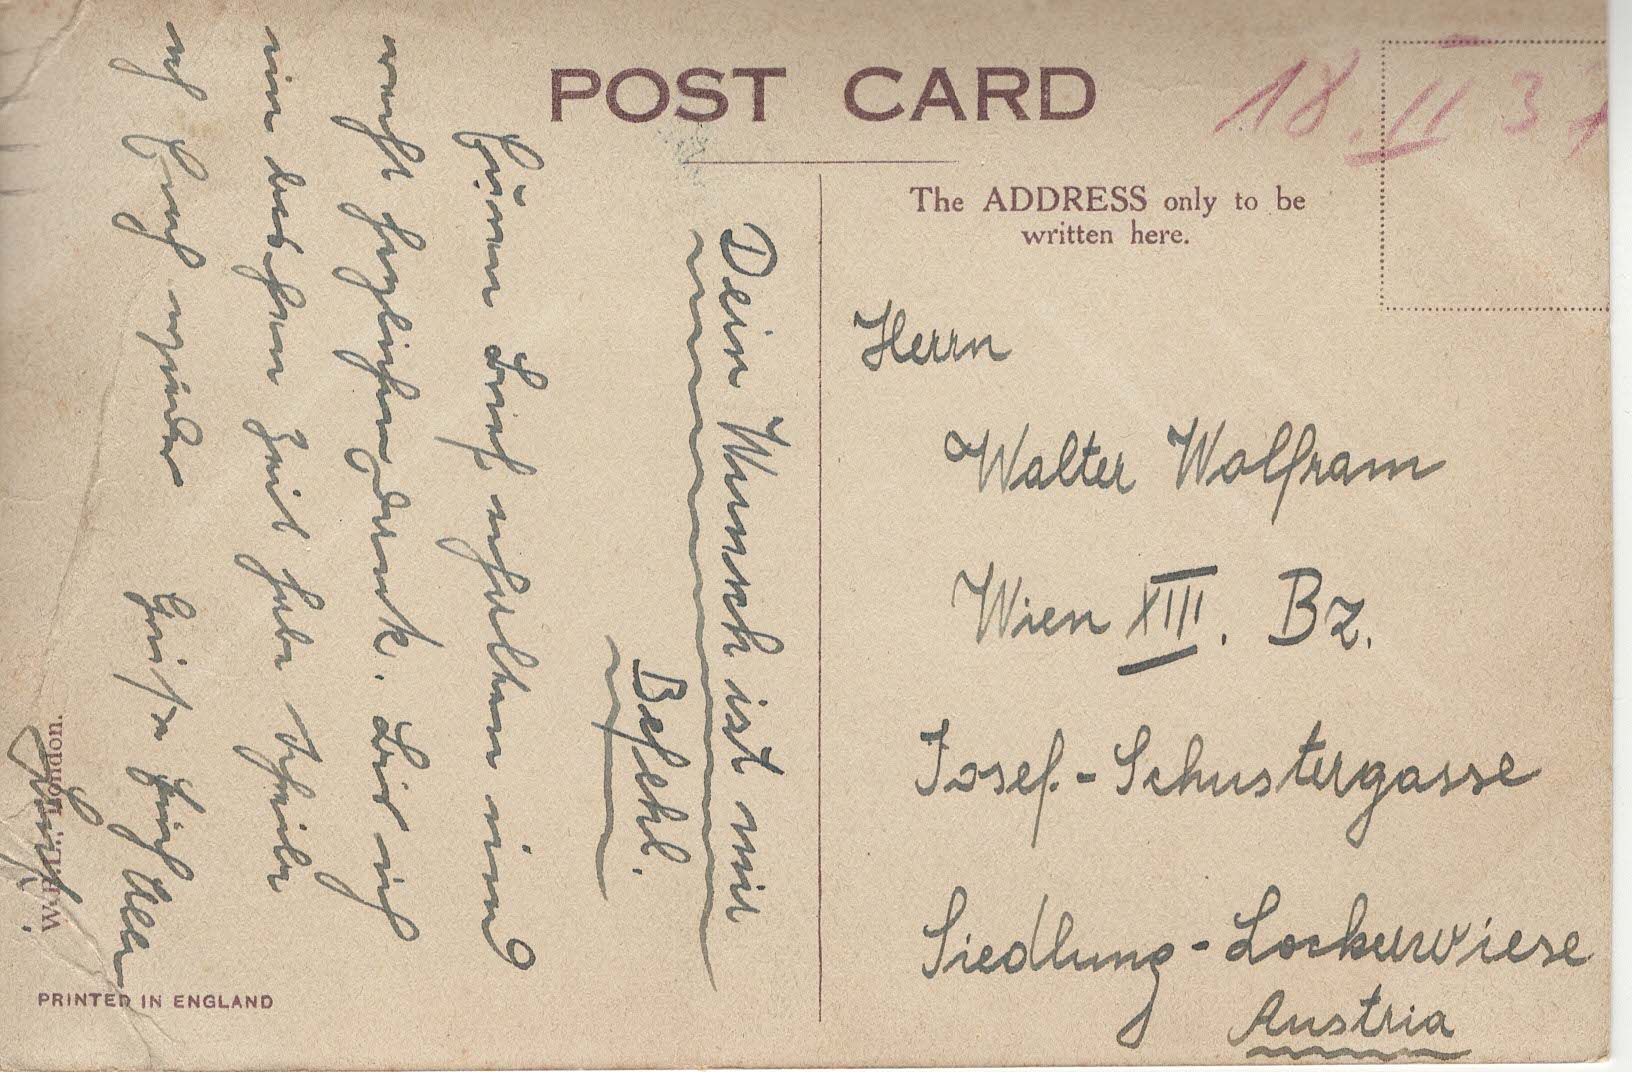 POST CARD
18. II 37
The ADDRESS only to be
written here.
Herrn
Walter Wolfram
Wien XIII. Bz.
Josef-Schustergasse
Siedlung-Lockerwiese
Austria
Dein Wunsch ist mir
Befehl.
Euren Brief erhalten und
recht herzlichen Dank. Bis ich
ein bischen Zeit habe schreibe
ich Euch wieder Grüße Euch Alle
London.
PRINTED IN ENGLAND